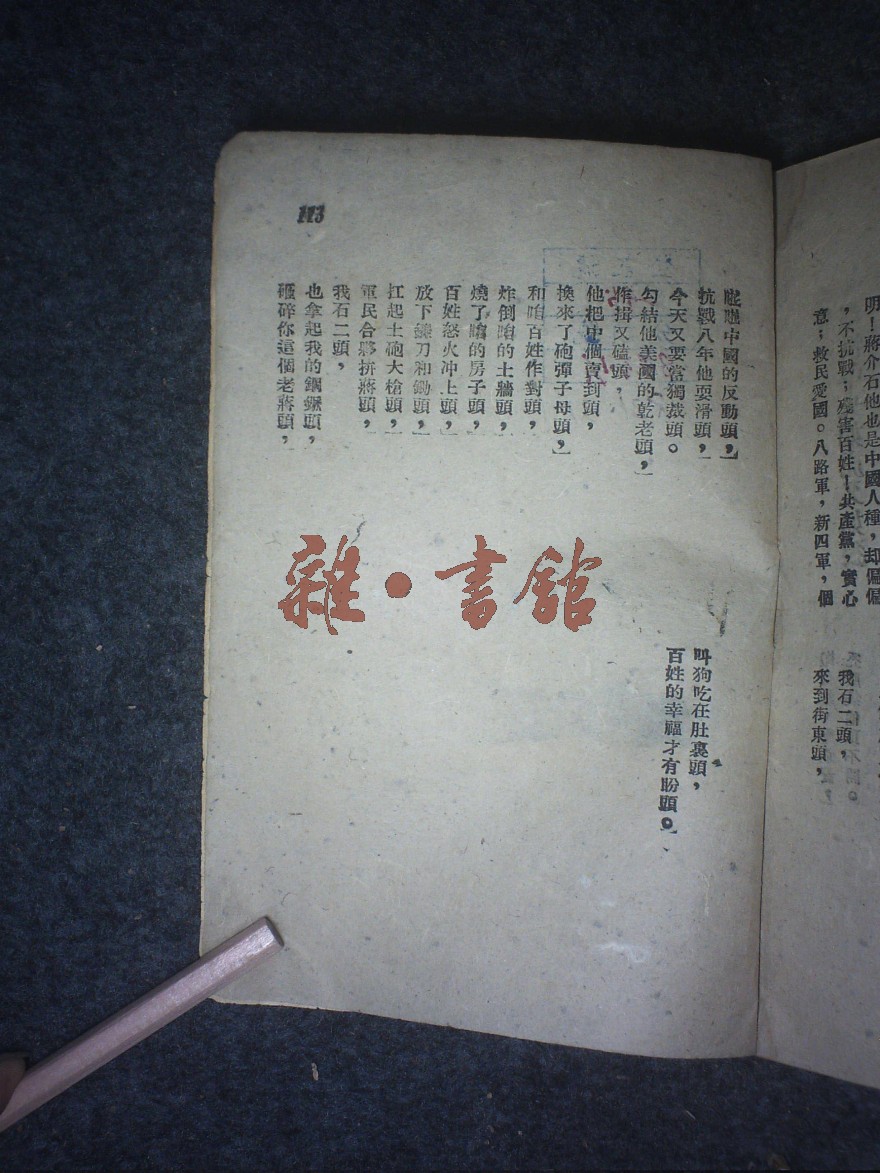 明！蔣介石他也是中國人種，却偏偏
，不抗戰；殘害百姓！共產黨，實心
意；救民愛國。八路軍，新四軍，個
我石二頭，
來到街東頭，
中國的反動頭，】
抗戰八年他耍滑頭，】
今天又要當獨裁頭。
勾結他美國的乾老頭，】
作揖又磕頭，
他把中個賣到頭，
換來了砲彈子母頭，】
和咱百姓作對頭，
炸倒咱的土牆頭，
燒了咱的房子頭，
百姓怒火冲上頭，】
放下鐮刀和鋤頭，
扛起土砲大槍頭，】
軍民合夥拼蔣頭，】
我石二頭，
也拿起我的鋼鐝頭，
砸碎你這個老蔣頭，
叫狗吃在肚裏頭，
百姓的幸福才有盼頭。】
113
雜·書館